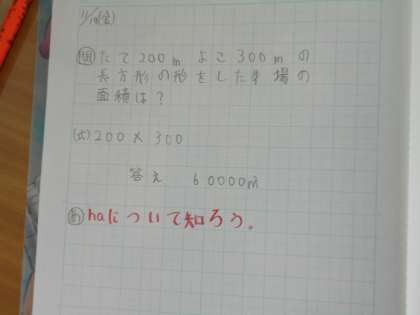 11/10(金)
問 たて200m よこ300mの
長方形の形をした牧場の
面積は？
(式)200×300
答え 60000㎡
め haについて知ろう。